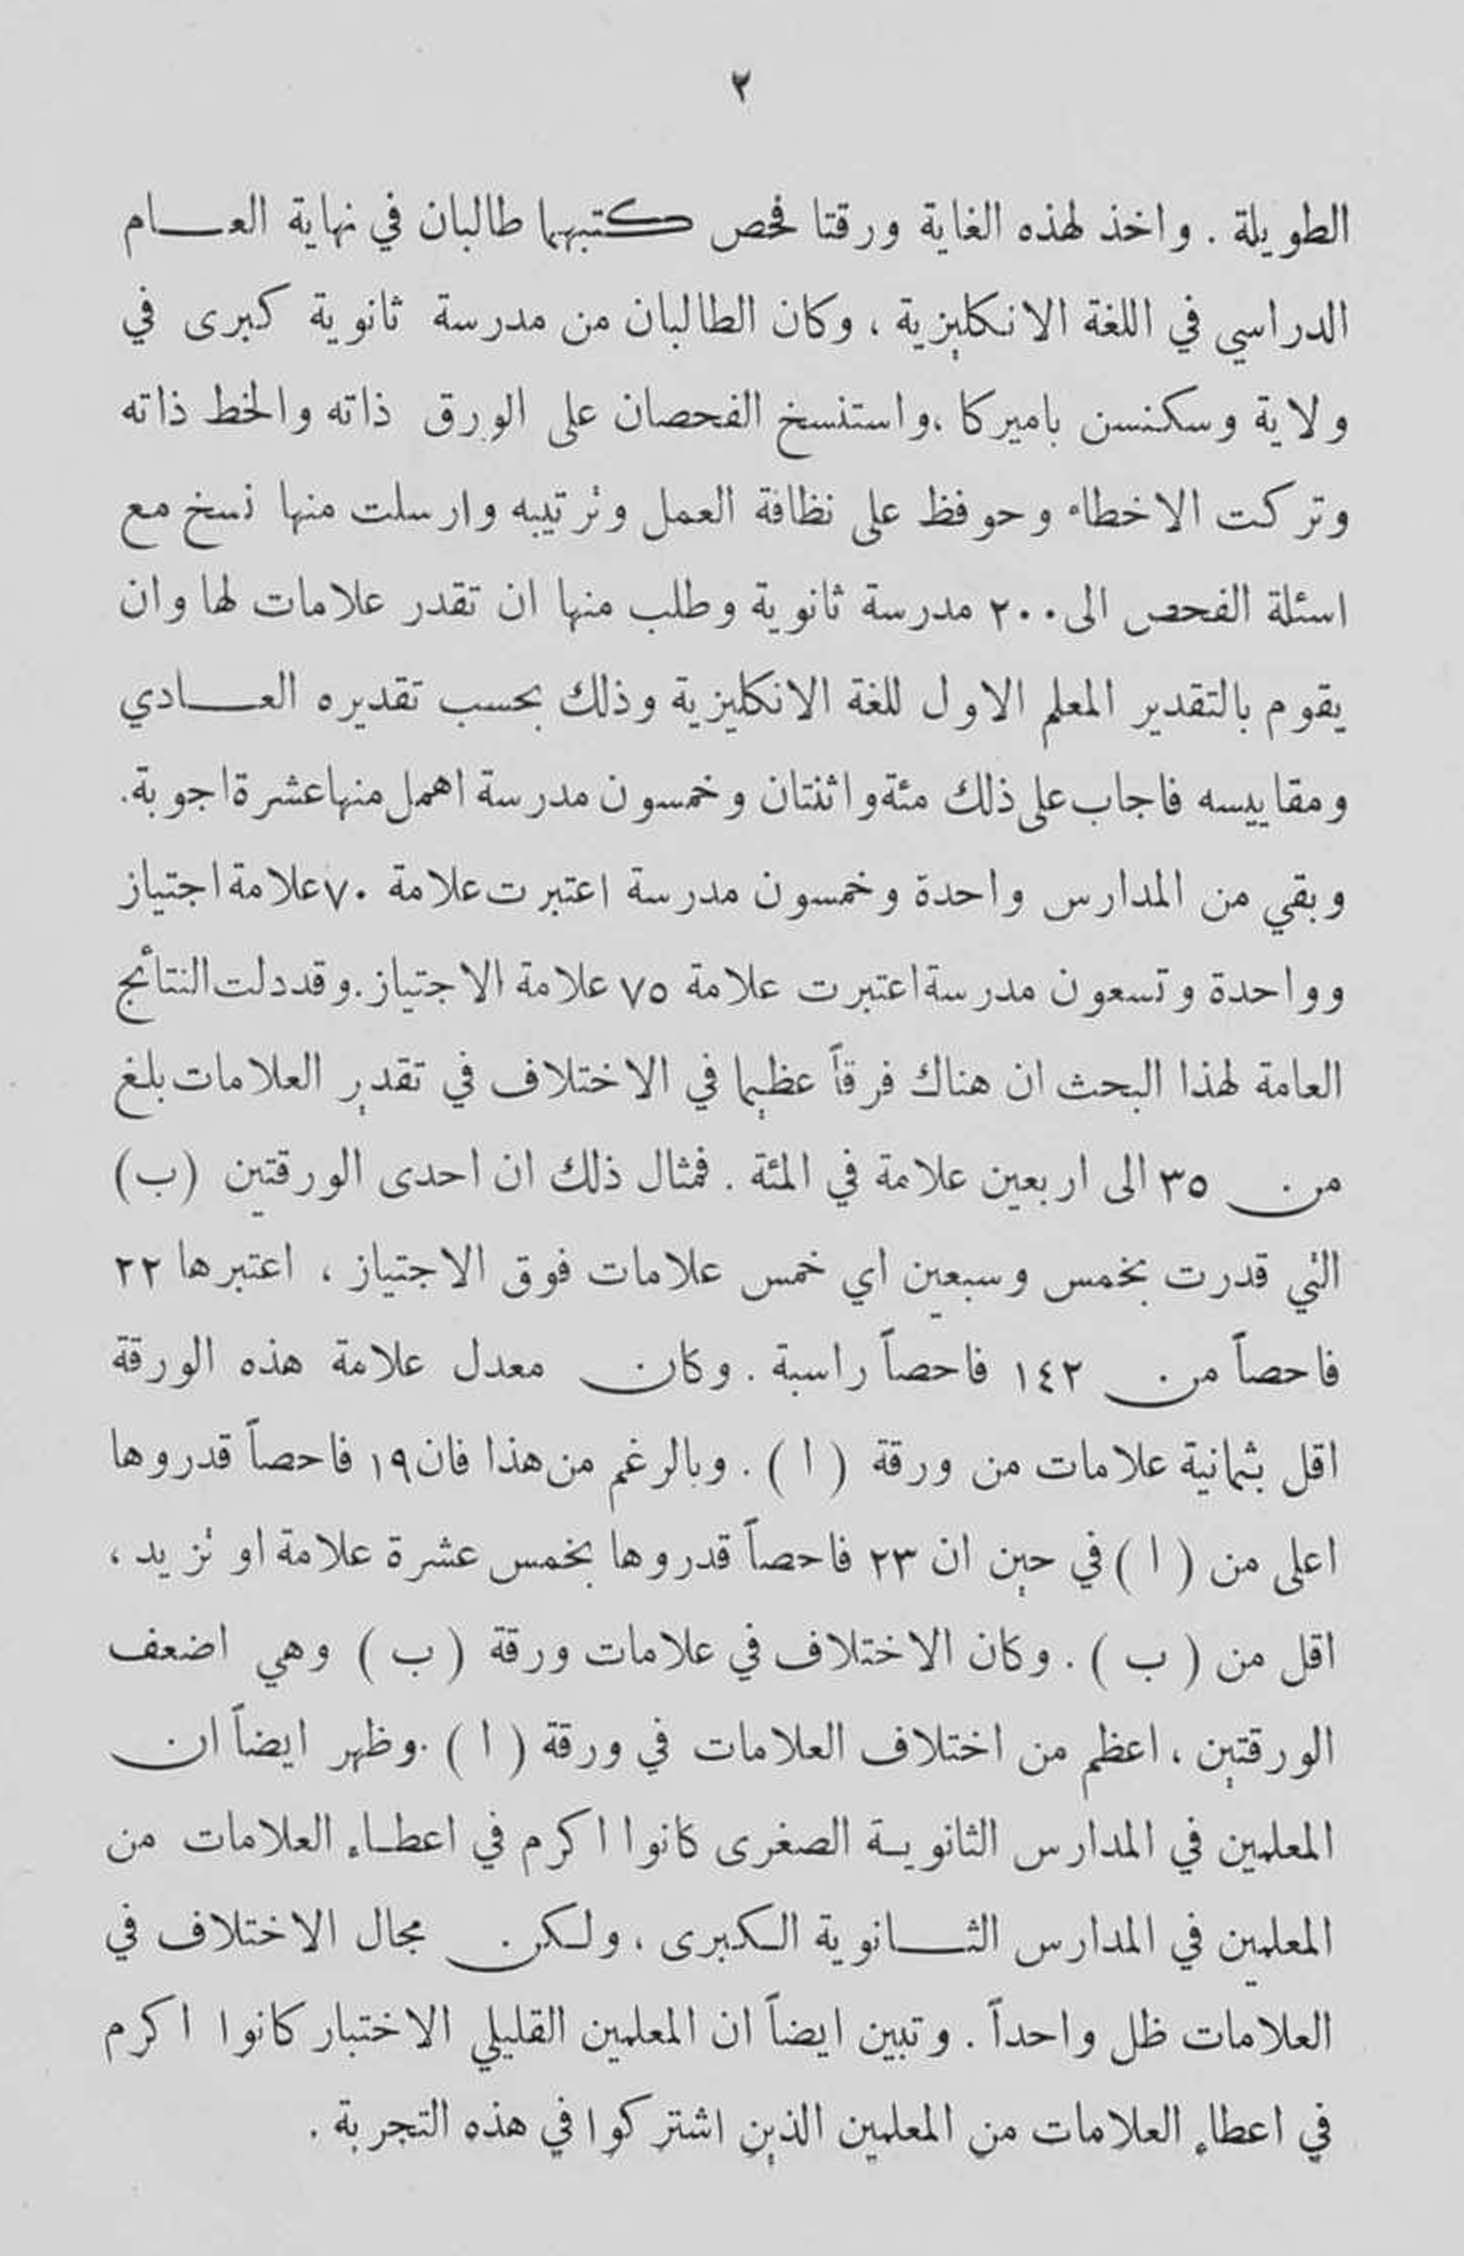 ٢
الطويلة . واخذ لهذه الغاية ورقتا فحص كتبهما طالبان في نهاية العام
الدراسي في اللغة الانكليزية ، وكان الطالبان من مدرسة ثانوية كبرى في
ولاية وسكنسن باميركا ،واستنسخ الفحصان على الورق ذاته والخط ذاته
وتركت الاخطاء وحوفظ على نظافة العمل وترتيبه وارسلت منها نسخ مع
اسئلة الفحص الى ٢٠٠ مدرسة ثانوية وطلب منها ان تقدر علامات لها وان
يقوم بالتقدير المعلم الاول للغة الانكليزية وذلك بحسب تقديره العادي
ومقاييسه فاجاب على ذلك مئة واثنتان وخمسون مدرسة اهمل منها عشرة اجوبة.
وبقي من المدارس واحدة وخمسون مدرسة اعتبرت علامة ٧٠ علامة اجتياز
وواحدة وتسعون مدرسة اعتبرت علامة ٧٥ علامة الاجتياز. وقد دلت النتائج
العامة لهذا البحث ان هناك فرقاً عظيما في الاختلاف في تقدير العلامات بلغ
من ٣٥ الى اربعين علامة في المئة . فمثال ذلك ان احدى الورقتين (ب)
التي قدرت بخمس وسبعين اي خمس علامات فوق الاجتياز ، اعتبرها ٢٢
فاحصاً من ١٤٢ فاحصاً راسبة . وكان معدل علامة هذه الورقة
اقل بثمانية علامات من ورقة ( ا ) . وبالرغم من هذا فان ١٩ فاحصاً قدروها
اعلى من ( ا ) في حين ان ٢٣ فاحصاً قدروها بخمس عشرة علامة او تزيد ،
اقل من ( ب ) . وكان الاختلاف في علامات ورقة ( ب ) وهي اضعف
الورقتين ، اعظم من اختلاف العلامات في ورقة ( ا ) . وظهر ايضاً ان
المعلمين في المدارس الثانوية الصغرى كانوا اكرم في اعطاء العلامات من
المعلمين في المدارس الثانوية الكبرى ، ولكن مجال الاختلاف في
العلامات ظل واحداً . وتبين ايضاً ان المعلمين القليلي الاختبار كانوا اكرم
في اعطاء العلامات من المعلمين الذين اشتركوا في هذه التجربة .